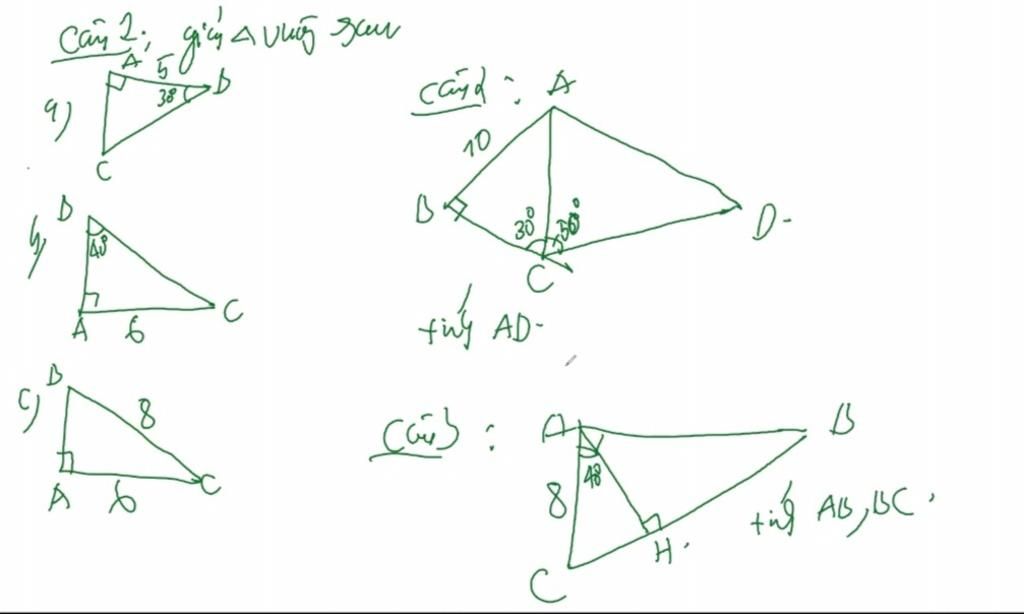 Câu 1: giải Δ vuông sau
a)
A
5
38°
B
C
b)
B
40°
A
6
C
c)
B
8
A
6
C
Câu 2:
A
10
B
30°
50°
C
D
tính AD
Câu 3:
A
B
48
8
H
C
tính AB, BC.